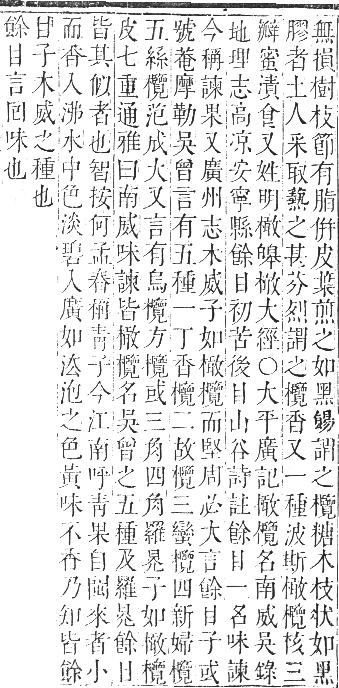 無損樹枝節有脂併皮葉煎之如黑餳謂之欖糖木枝狀如黑
膠者土人采取爇之甚芬烈謂之欖香又一種波斯橄欖核三
瓣蜜漬食又姓明橄皥橄大經○大平廣記橄欖名南威吳錄
地理志高凉安寧縣餘甘初苦後甘山谷詩註餘甘一名味諫
今稱諫果又廣州志木威子如橄欖而堅周必大言餘甘子或
號菴摩勒吳曾言有五種一丁香欖二故欖三蠻欖四新婦欖
五絲欖范成大又言有烏欖方欖或三角四角羅晃子如橄欖
皮七重通雅曰南威味諫皆橄欖名吳曾之五種及羅晃餘甘
皆其似者也智按何孟舂稱靑子今江南呼靑果自閩來者小
而香入沸水中色淡碧入廣如泡之色黃味不香乃知皆餘
甘子木威之種也
餘甘言回味也